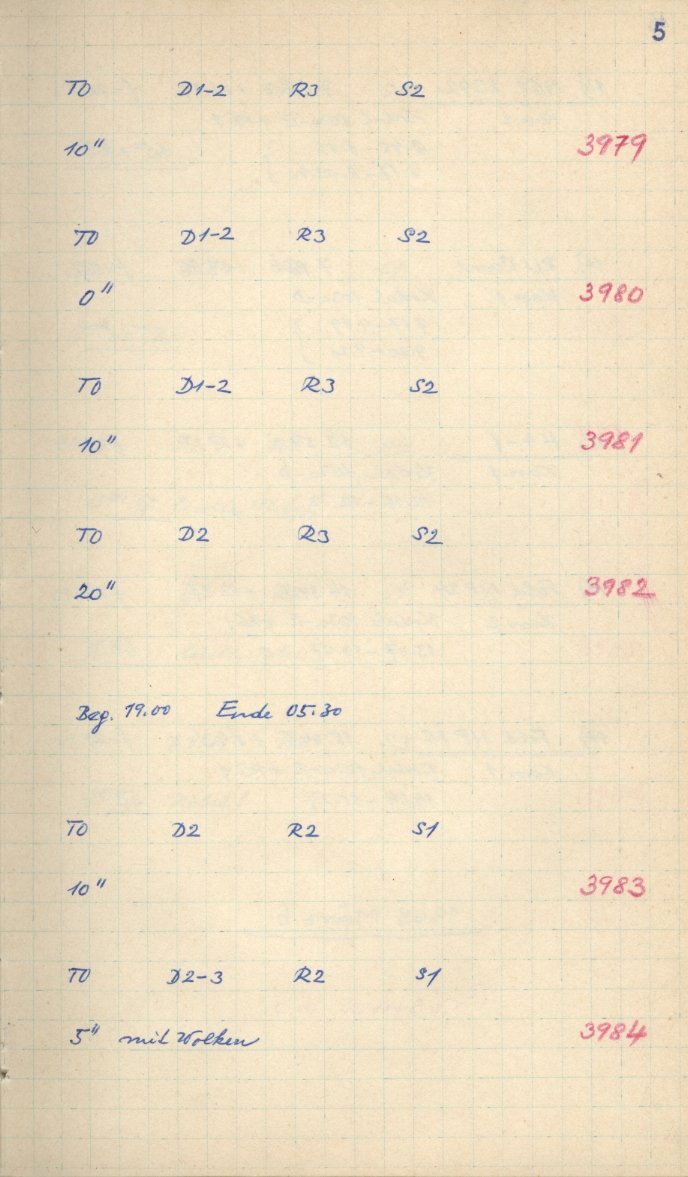 5
T0 D1-2 R3 S2
10" 3979
T0 D1-2 R3 S2
0" 3980
T0 D1-2 R3 S2
10" 3981
T0 D2 R3 S2
20" 3982
Beg. 19.00 Ende 05.30
T0 D2 R2 S1
10" 3983
T0 D2-3 R2 S1
5" mit Wolken 3984